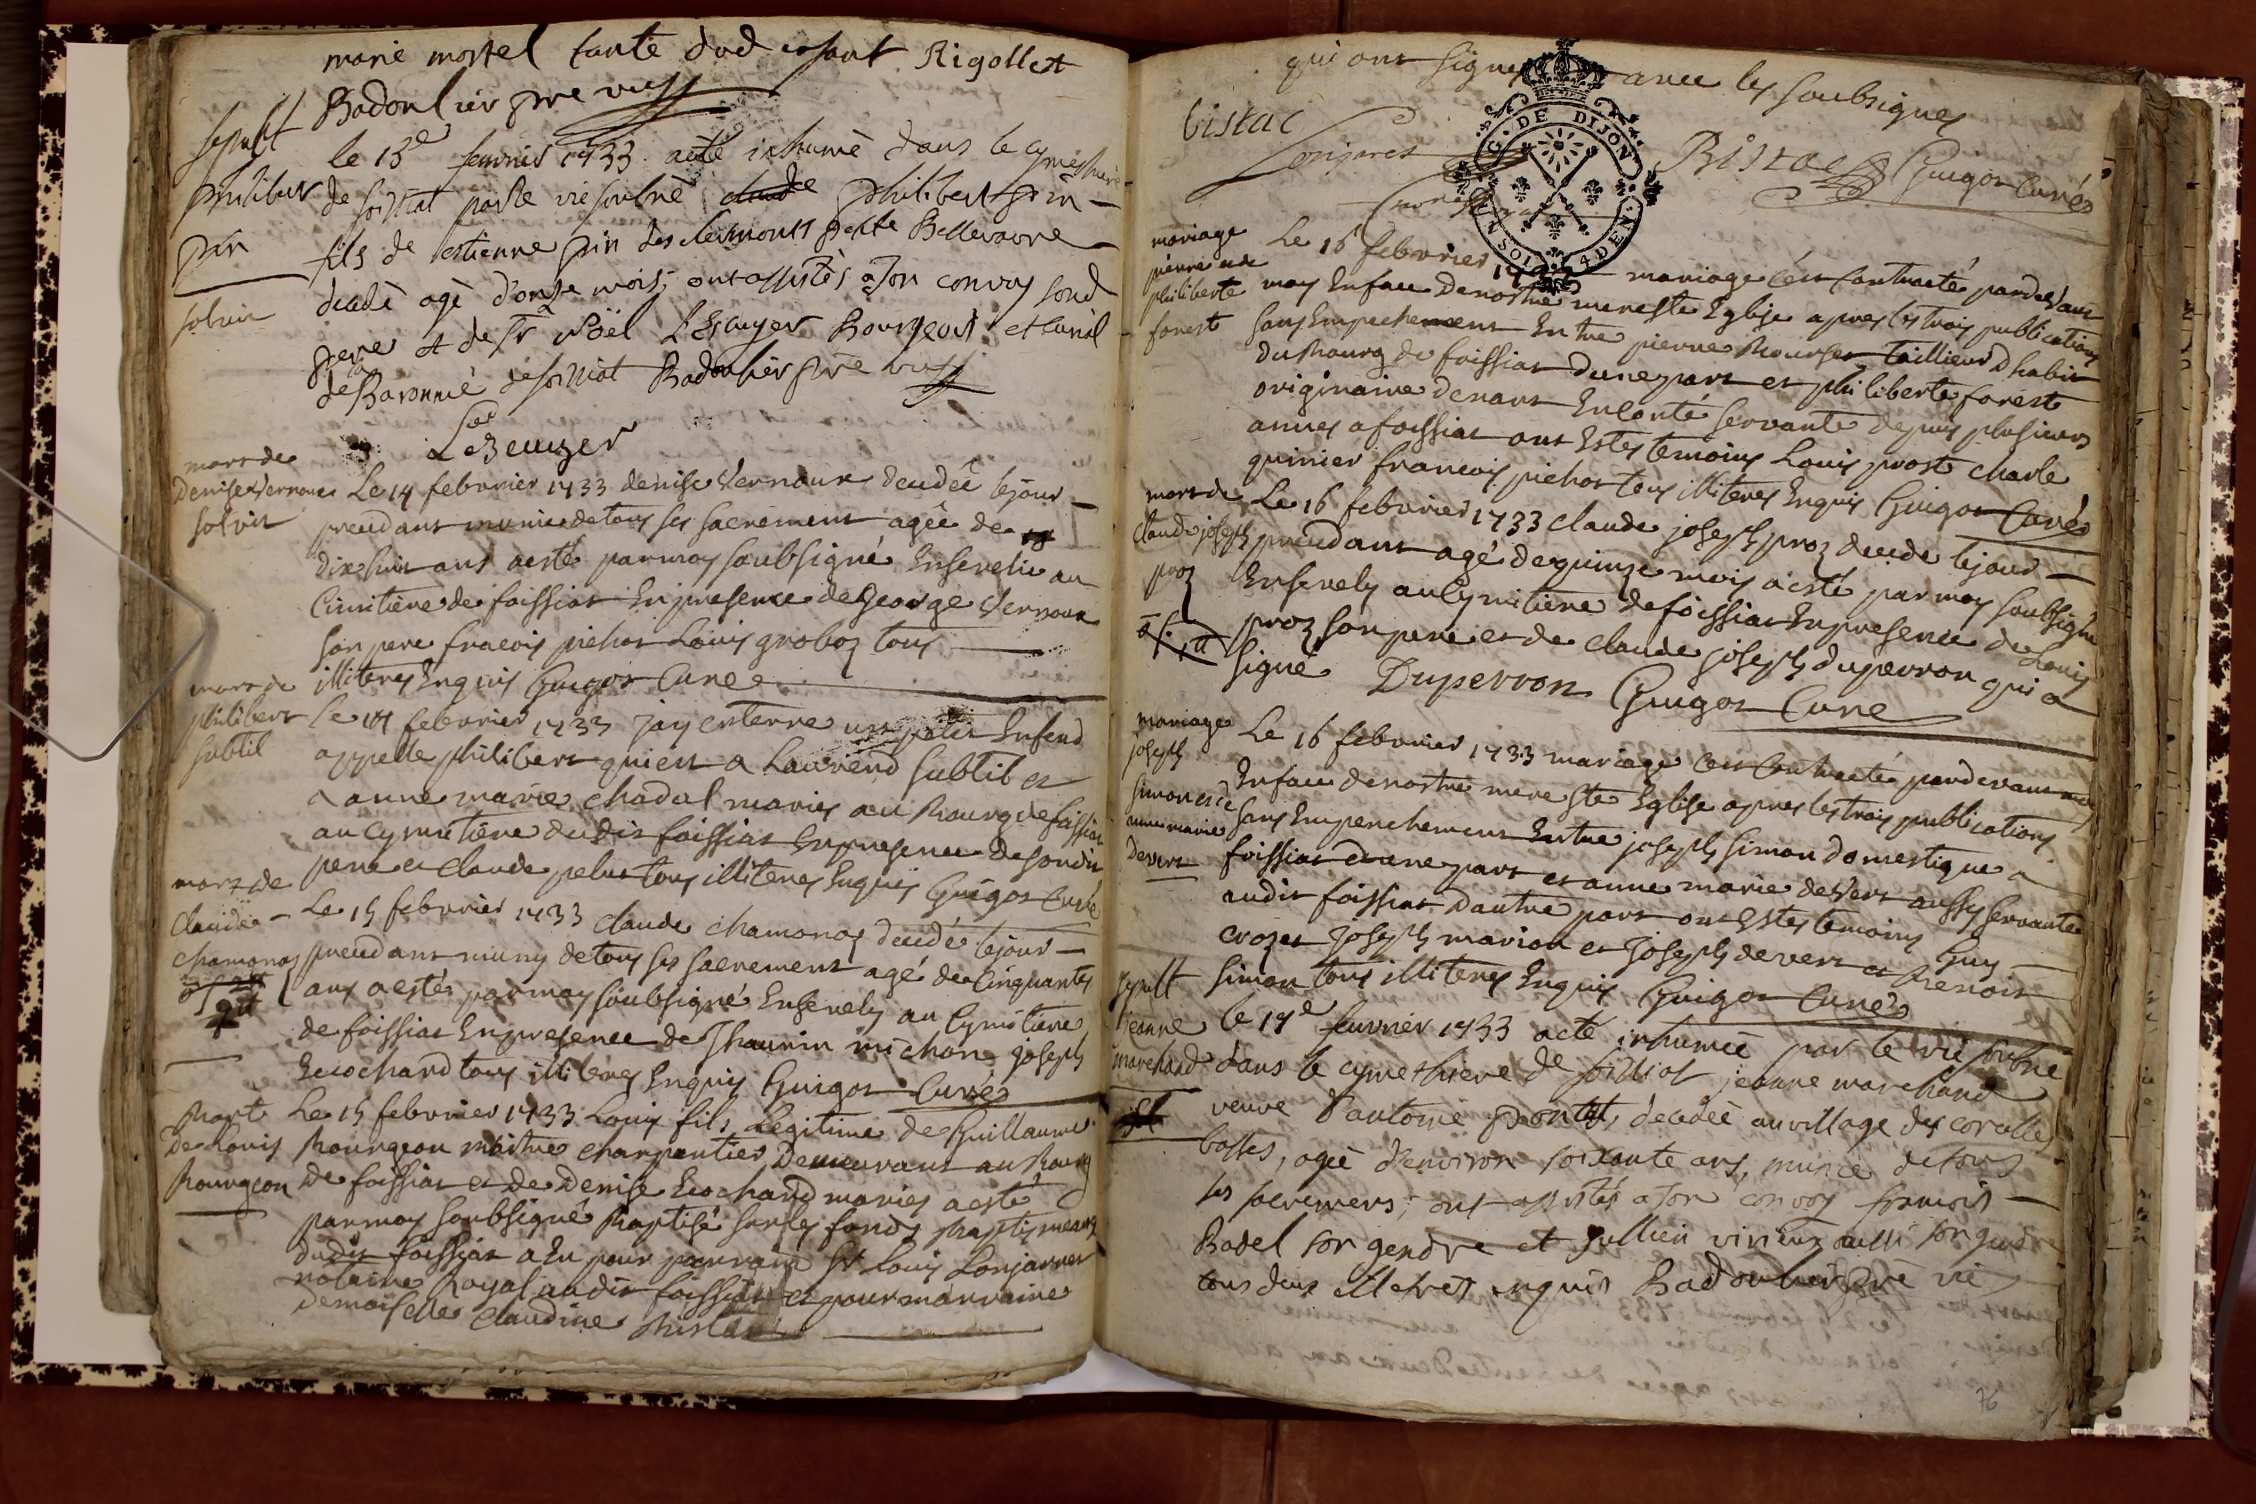 marie mortel tante dud enfant Rigollet
Badoulier pre vic
sepult
philibert
pin
solvit
le 13e fevrier 1733 a eté inhumé dans le cymethiere
de foissiat par le vic soubné claude philibert pin
fils de estienne pin des clermonts pnte Bellevavre
decedé agé d'onze mois, ont assistés a son convoy sond
pere et de Sr Noël L'Escuyer Bourgeois et curial
de Baronnié de foissiat Badoulier pre vic
mort de
denise vernoux
solvit
Le 14 febvrier 1733 denise vernoux decedée le jour
precedant munie de tous ses sacrement agée de
dix huit ans a esté par moy soubsigné Ensevelie au
Cimitiere de foissiat En presence de George vernoux
son pere francois pichot Louis groboz tous
illiterés Enquis Guigot Curé
mort de
philibert
subtil
Le 14 febvrier 1733 jay enterre un petit Enfend
appelle philibert qui est a Laurend subtil et
a anne marie chadal mariés au Bourg de foissiat
au Cymitiere dudit foissiat En presence de sondit
pere et claude pelus tous illiterés Enquis Guigot Curé
mort de
Claude
chamonoz
Le 15 febvrier 1733 claude chamonoz decedé le jour
precedant muny de tous ses sacrement agé de Cinquantes
ans a estés par moy soubsigné Ensevely au Cymitiere
de foissiat En presence de Thaurin michon joseph
Ecochard tous illiterés Enquis Guigot Curé
Bapt
De Louis
Bourgeon
Le 15 febvrier 1733 Louis fils Legitime de Guillaume
Bourgeon maistre charpentier Demeurant au Bourg
de foissiat et de Denise Ecochard mariés a esté
par moy soubsigné Baptisé sur les fonds Baptismeaux
dudit foissiat a Eu pour parrain Sr Louis Lonjarret
notaire Royal audit foissiat et pour marraine
demoiselle claudine Bistac
qui ont signés avec les soubsignés
bistac
Lonjarret
Bistac Guigot Curé
G. DE DIJON
4 DEN.
mariage
pierre et de
philiberte
forest
Le 16 febvrier 1733 mariage c'est Contracté pardevant
moy En face de nostre mere Ste Eglise apres les trois publications
sans Empechement Entre pierre Bourset taillieur d'habit
du Bourg de foissiat d'une part et philiberte forest
originaire denant En Conté servante depuis plusieurs
annés a foissiat ont Estés temoins Louis prost charle
quinier francois pichot tous illiterés Enquis Guigot Curé
mort de
Claude joseph
proz
Le 16 febvrier 1733 claude joseph proz decedé le jour
precedant agé de quinze mois a esté par moy soubsigné
Ensevely au Cymitiere de foissiat En presence de Louis
proz son pere et de claude joseph duperron qui a
signé Duperron Guigot Curé
mariage
joseph
simon et de
anne marie
devert
Le 16 febvrier 1733 mariage c'est Contracté pardevant moy
En face de nostre mere Ste Eglise apres les trois publications
sans Empechement Entre joseph simon domestique a
foissiat d'une part et anne marie devert aussy servante
audit foissiat d'autre part ont Estés temoins Guy
crozet joseph marion et joseph devert et Benoit
simon tous illiterés Enquis Guigot Curé
sepult
jeanne
marchand
le 17e fevrier 1733 a eté inhumée par le vic soubné
dans le cymethiere de foissiat jeanne marchand
veuve d'antoine pontet, decedée au village des coralles
basses, agée d'environ soixante ans, munie de tous
ses sacremens, ont assistés a son convoy francois
Badel son gendre et jullien vivien aussi son gend
tous deux illetrés enquis Badoulier pre vic
76